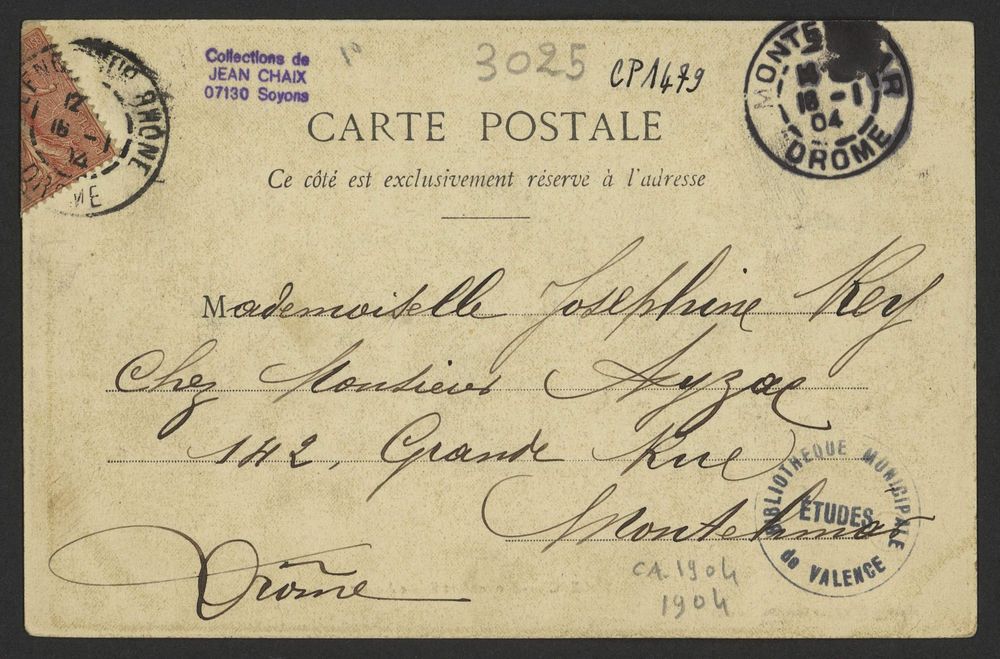 Collections de
JEAN CHAIX
07130 Soyons
1°
3025
CP1479
RHONE
12
16 -1
MONTE AR
18 -1
04
DROME
CARTE POSTALE
Ce côté est exclusivement réservé à l'adresse
Mademoiselle Josephine Rey
Chez Monsieur Ayzac
142, Grande Rue
Montelimar
Drôme
BIBLIOTHEQUE MUNICIPALE
ETUDES
de VALENCE
CA.1904
1904